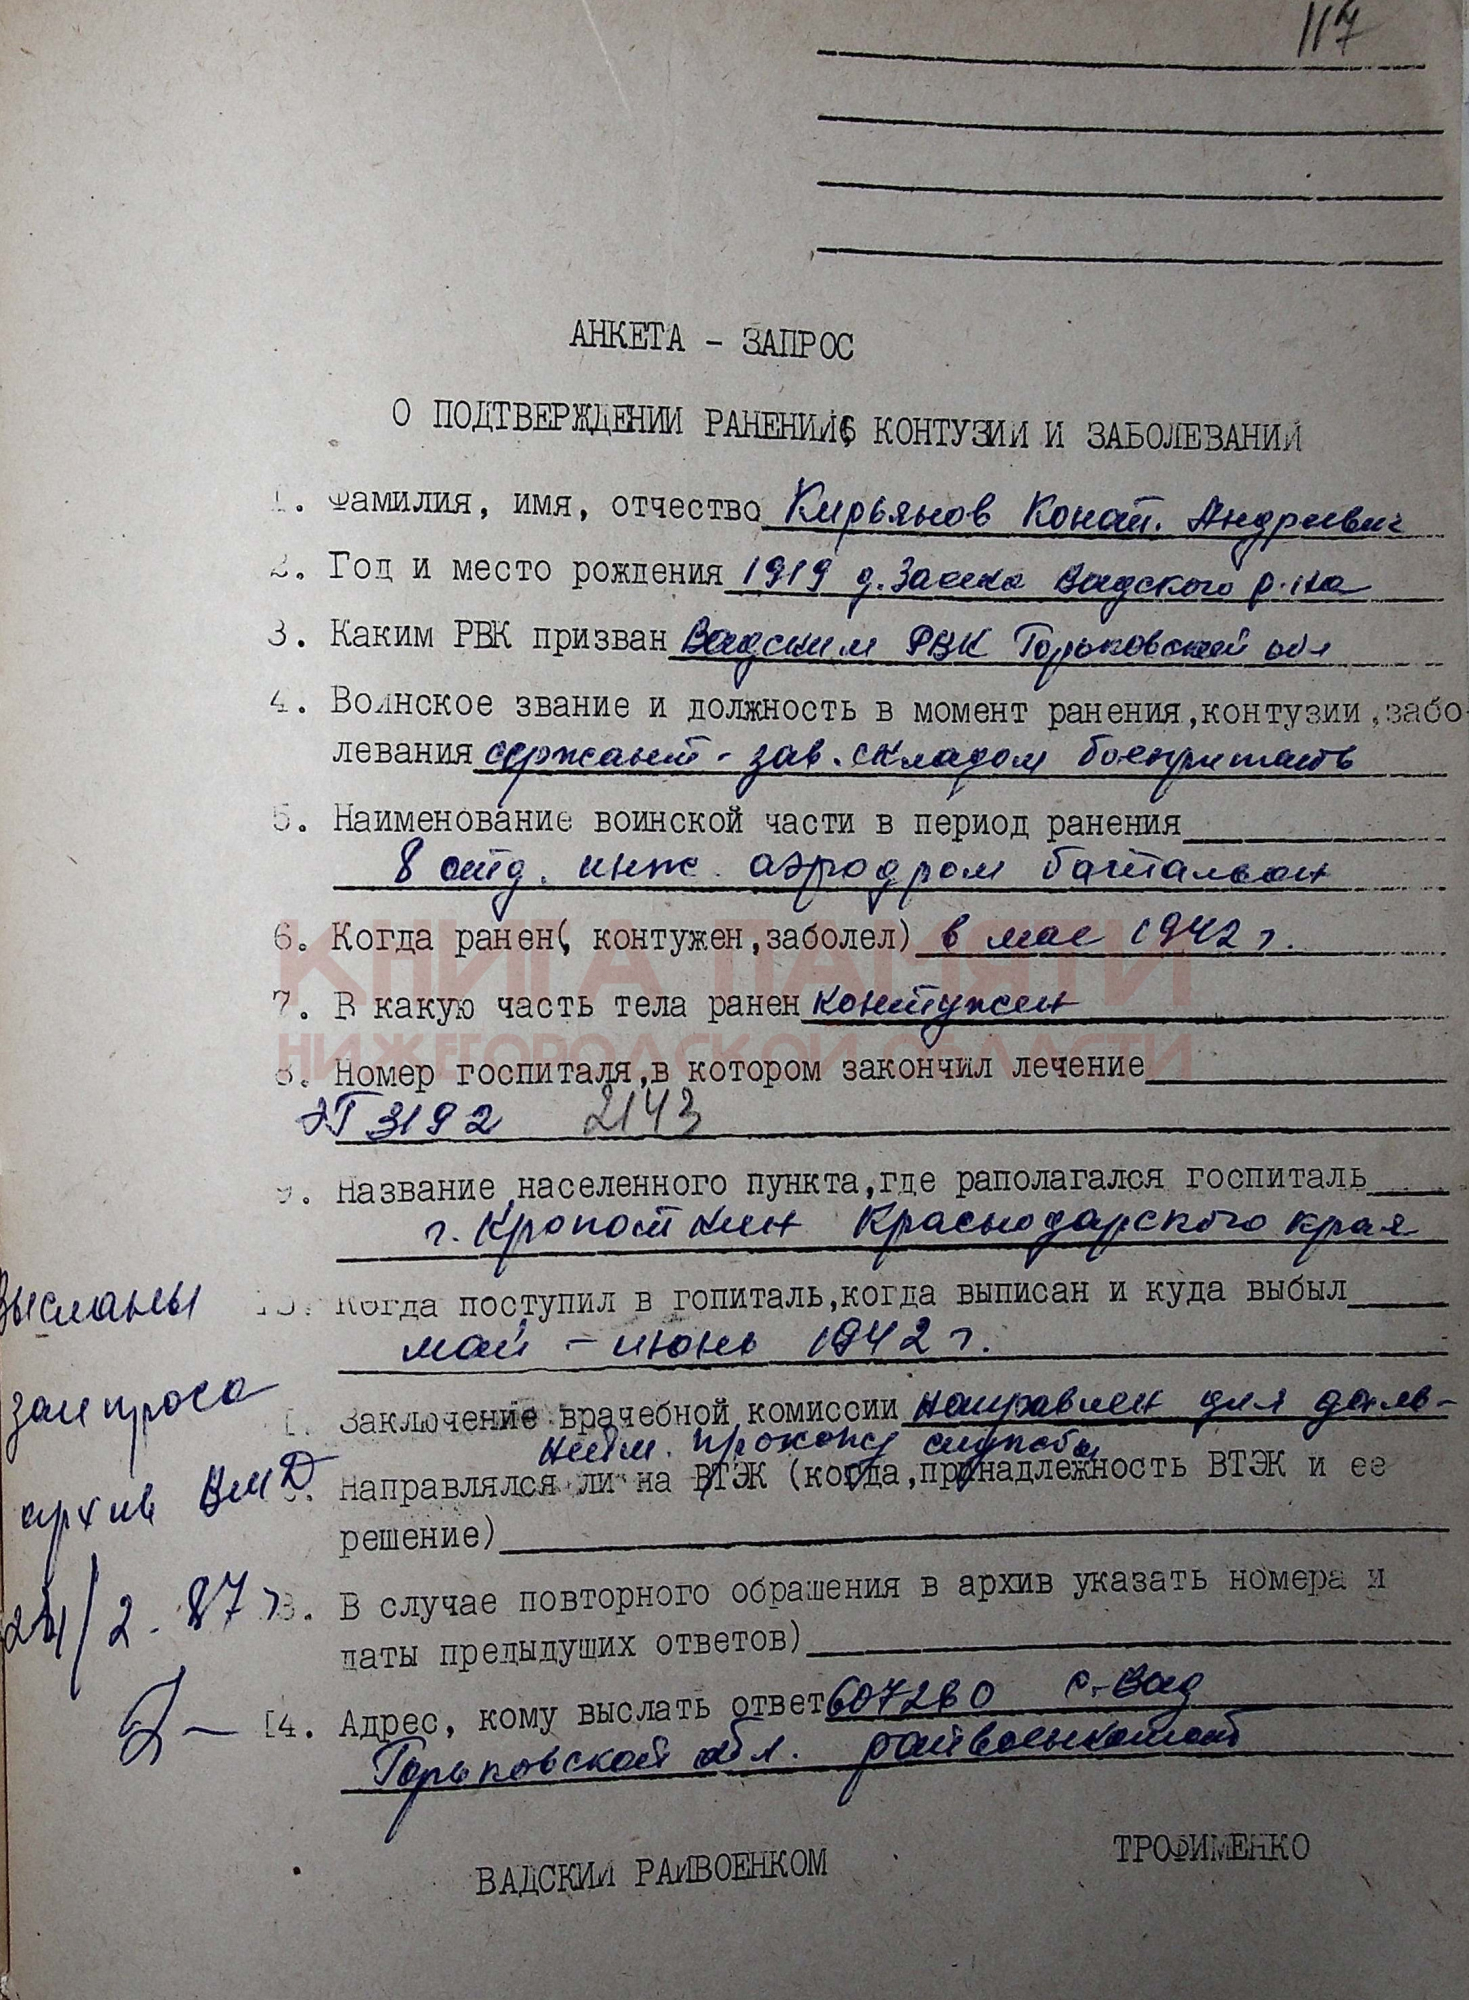 117
АНКЕТА - ЗАПРОС
О ПОДТВЕРЖДЕНИИ РАНЕНИЙ, КОНТУЗИИ И ЗАБОЛЕВАНИЙ
1. Фамилия, имя, отчество Кирьянов Конст. Андреевич
2. Год и место рождения 1919 д. Вадского р-на
3. Каким РВК призван Вадским РВК Горьковской обл
4. Воинское звание и должность в момент ранения, контузии, забо-
левания сержант - зав. складом боепитания
5. Наименование воинской части в период ранения
8 отд. инж. аэродром батальон
6. Когда ранен(, контужен, заболел) в мае 1942 г.
КНИГА ПАМЯТИ
7. В какую часть тела ранен контужен
НИЖЕГОРОДСКОЙ ОБЛАСТИ
8. Номер госпиталя, в котором закончил лечение
ЭГ 3192 2143
9. Название населенного пункта, где раполагался госпиталь
г. Кропоткин Краснодарского края
10. Когда поступил в гопиталь, когда выписан и куда выбыл
май - июнь 1942 г.
Высланы
запроса
архив ВМД
24/2-87 г
11. Заключение врачебной комиссии направлен для даль-
нейш. прохожд службы
12. Направлялся ли на ВТЭК (когда, принадлежность ВТЭК и ее
решение)
13. В случае повторного обращения в архив указать номера и
даты предыдущих ответов)
14. Адрес, кому выслать ответ 607280 с. Вад
Горьковской обл. райвоенкомат
ВАДСКИЙ РАЙВОЕНКОМ ТРОФИМЕНКО